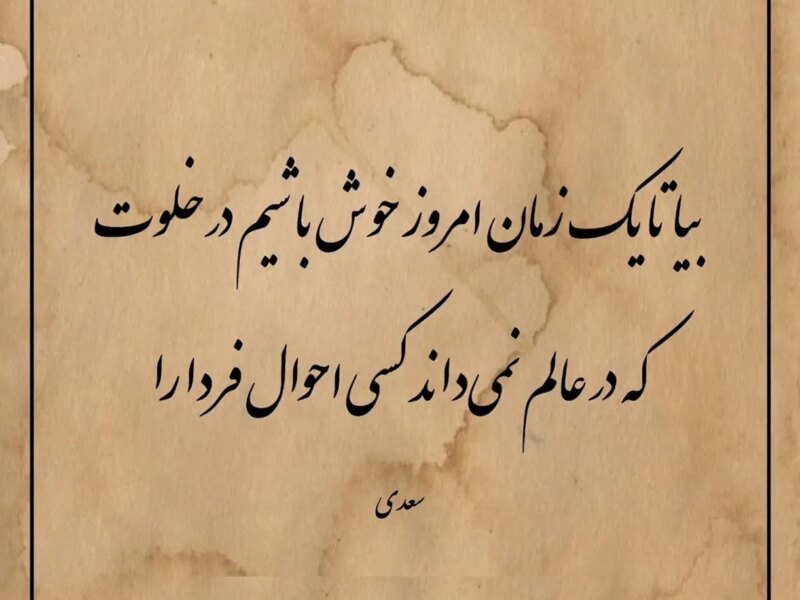 بیا تا یک زمان امروز خوش باشیم در خلوت
که در عالم نمی‌داند کسی احوال فردا را
سعدی